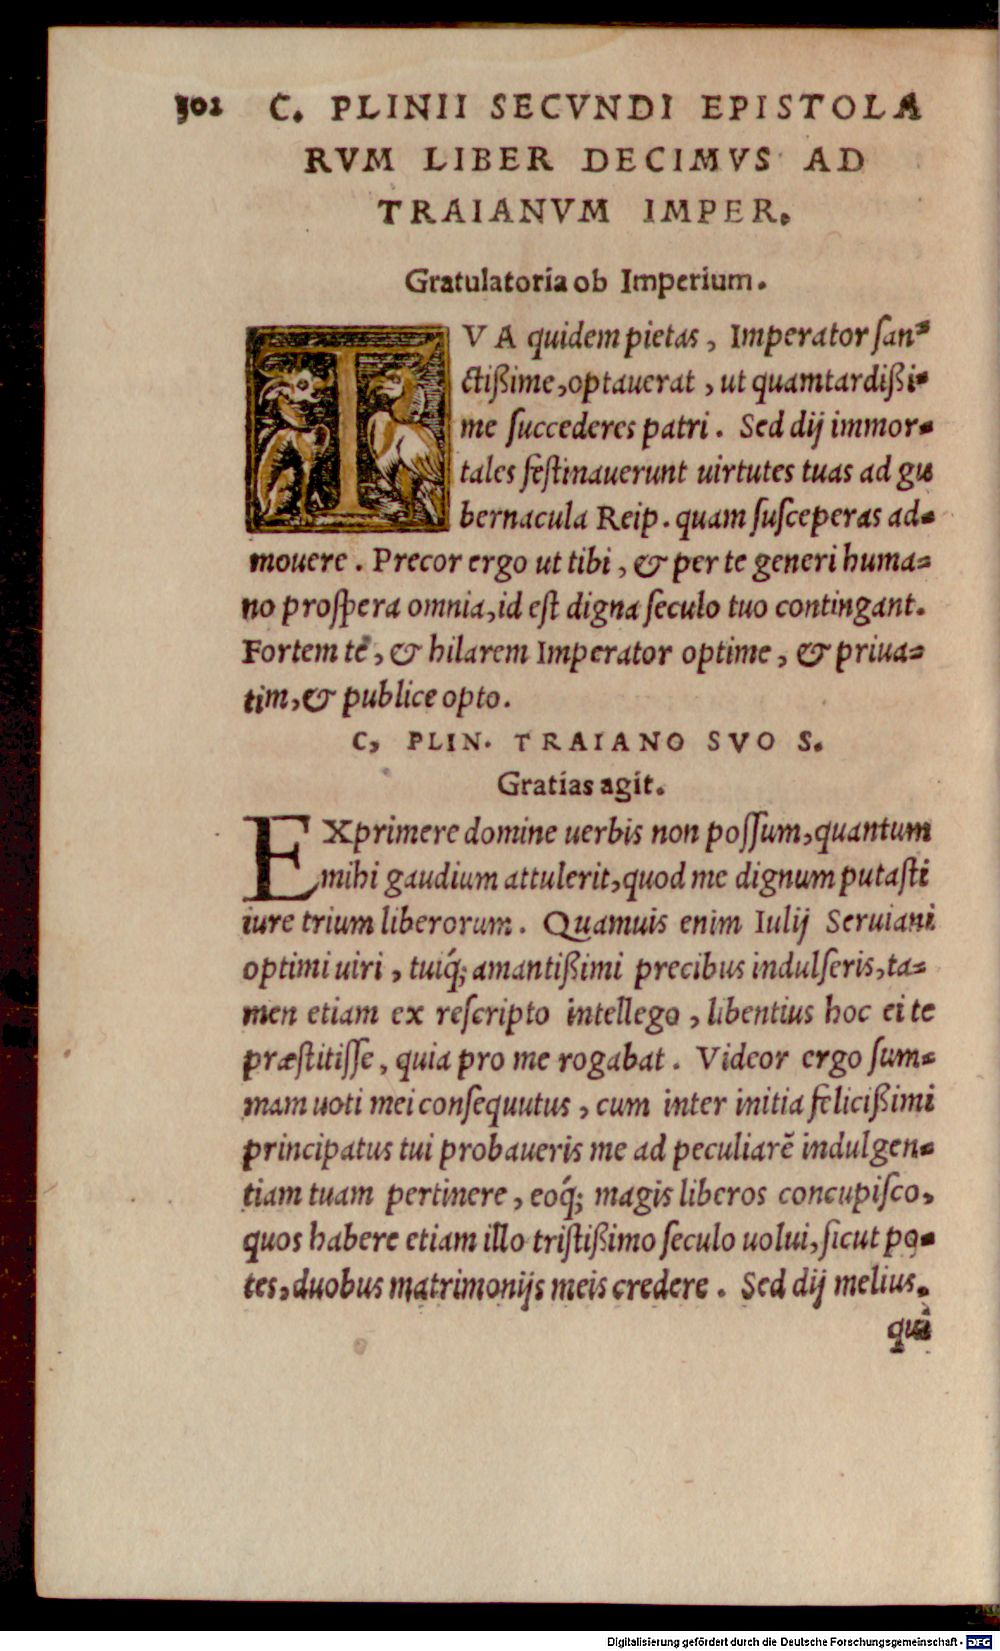 302 C. PLINII SECVNDI EPISTOLA
RVM LIBER DECIMVS AD
TRAIANVM IMPER.
Gratulatoria ob Imperium.
TVA quidem pietas, Imperator ſan-
ctißime, optauerat, ut quamtardißi-
me ſuccederes patri. Sed dij immor-
tales feſtinauerunt uirtutes tuas ad gu
bernacula Reip. quam ſuſceperas ad-
mouere. Precor ergo ut tibi, & per te generi huma-
no proſpera omnia, id eſt digna ſeculo tuo contingant.
Fortem te, & hilarem Imperator optime, & priua-
tim, & publice opto.
C, PLIN. TRAIANO SVO S.
Gratias agit.
EXprimere domine uerbis non poſſum, quantum
mihi gaudium attulerit, quod me dignum putaſti
iure trium liberorum. Quamuis enim Iulij Seruiani
optimi uiri, tuiq́; amantißimi precibus indulſeris, ta-
men etiam ex reſcripto intellego, libentius hoc ei te
præſtitiſſe, quia pro me rogabat. Videor ergo ſum-
mam uoti mei conſequutus, cum inter initia feliciſ­ßimi
principatus tui probaueris me ad peculiarẽ indulgen-
tiam tuam pertinere, eoq́; magis liberos concupiſco,
quos habere etiam illo triſtißimo ſeculo uolui, ſicut po-
tes, duobus matrimonijs meis credere. Sed dij melius.
qui
Digitalisierung gefördert durch die Deutsche Forschungsgemeinschaft - DFG